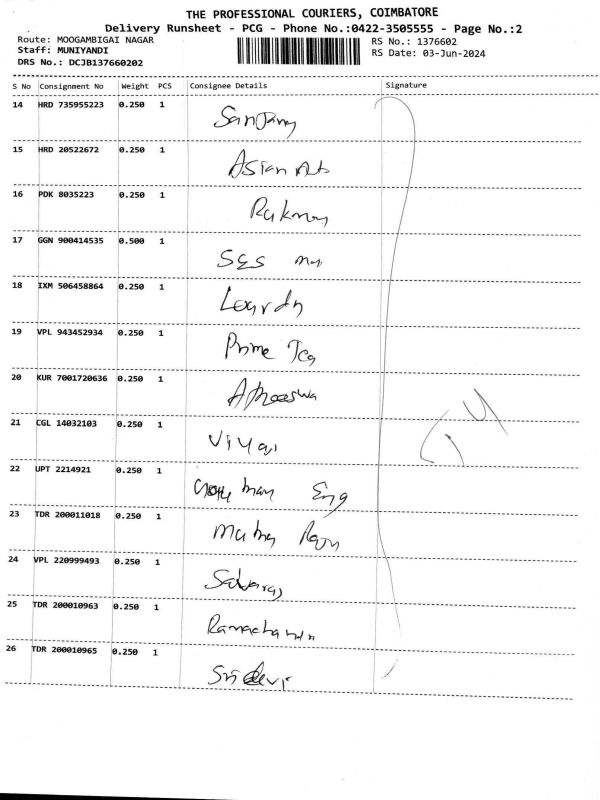 THE PROFESSIONAL COURIERS, COIMBATORE
Delivery Runsheet - PCG - Phone No.:0422-3505555 - Page No.:2
Route: MOOGAMBIGAI NAGAR RS No.: 1376602
Staff: MUNIYANDI RS Date: 03-Jun-2024
DRS No.: DCJB137660202
S No Consignment No Weight PCS Consignee Details Signature
14 HRD 735955223 0.250 1
15 HRD 20522672 0.250 1 Asian
16 PDK 8035223 0.250 1
17 GGN 900414535 0.500 1 SES
18 IXM 506458864 0.250 1
19 VPL 943452934 0.250 1 Prime
20 KUR 7001720636 0.250 1
21 CGL 14032103 0.250 1
22 UPT 2214921 0.250 1 Eng
23 TDR 200011018 0.250 1
24 VPL 220999493 0.250 1
25 TDR 200010963 0.250 1
26 TDR 200010965 0.250 1 Sridevi